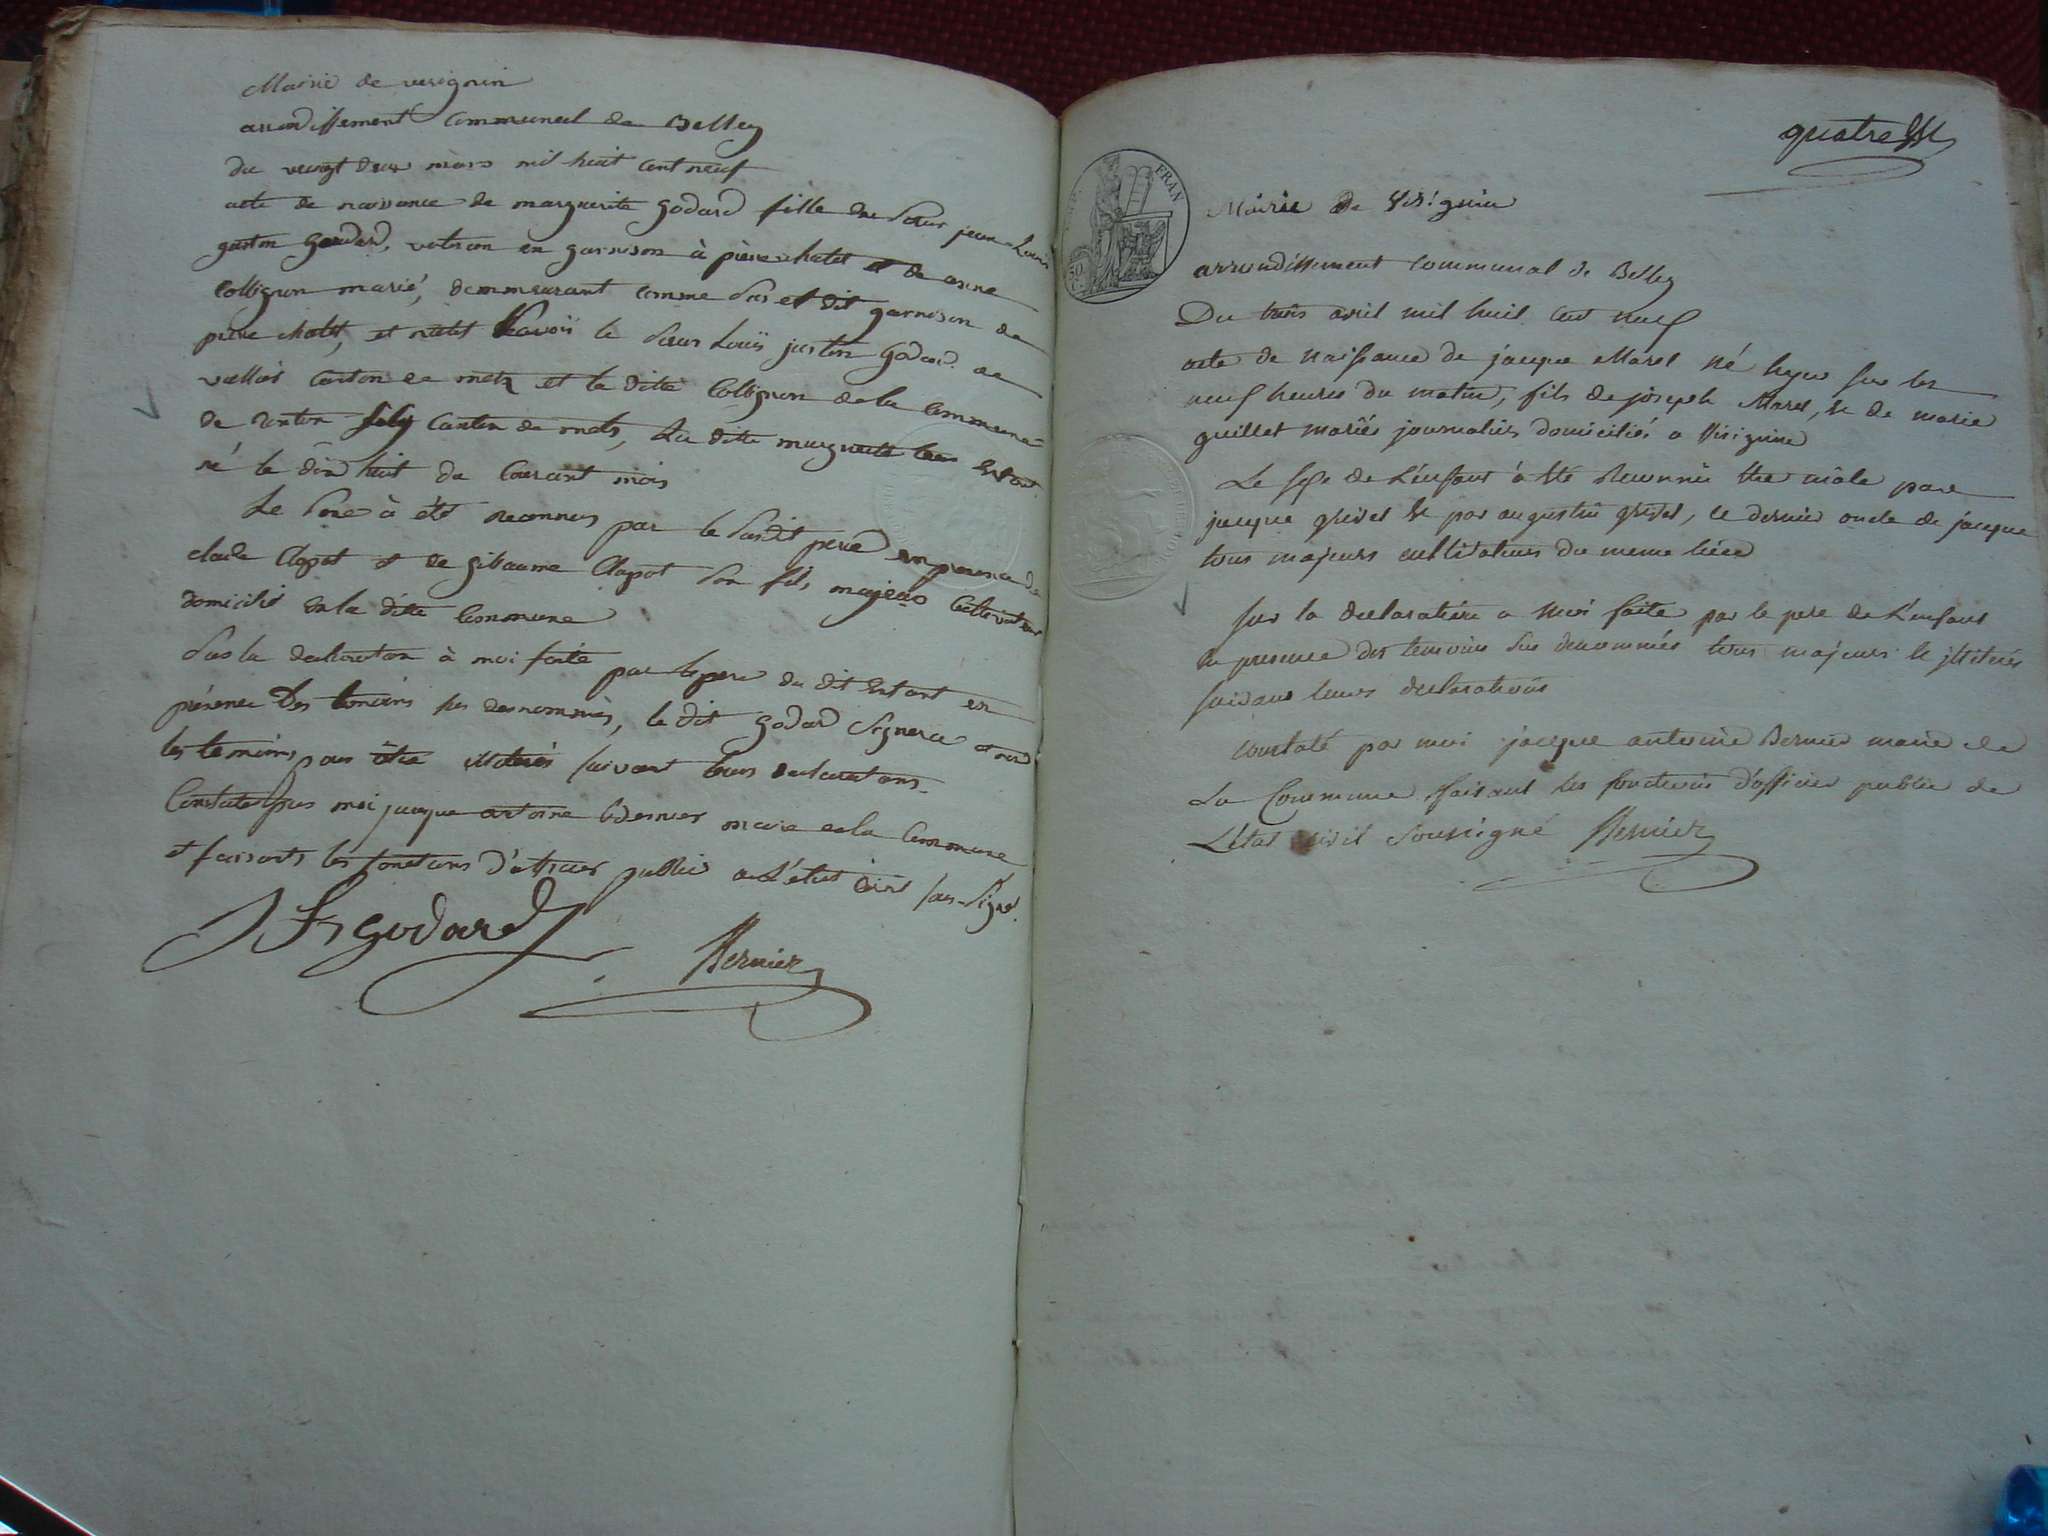 Mairie de verignin
arrondissement Communal de Belley
du vingt deux mars mil huit cent neuf
acte de naissance de marguerite Godard fille du Sieur jean Louis
gaston Godard, en garnison à pierre chatel et de anne
Collignon marié, demmeurant comme Sus et dit garnison de
pierre chatel, et natif Savoir le Sieur Louis justin Godard de
canton de metz et la ditte Collignon de la Commune
de canton de mets, La ditte marguerite Enfant
né le dix huit du Courant mois
Le Sexe à été reconnus par le Susdit pere en presence de
claude Clapot et de gilbaume Clapot Son fils, majeurs Cultivateur
domicilié en la ditte Commune
Sur la declaration à moi faite par le pere du dit Enfant en
présence Des temoins sus denommés, le dit Godard Signera et non
les temoins pour être illiterés suivant leurs declarations
Constaté par moi jacque antoine Bernier maire de la Commune
et faisants les fonctions d'officier public de L'état Civil sous-Signé.
Godard
Bernier
quatre
FRAN
50
Mairie de Virignin
arrondissement communal de Belley
Du trois avril mil huit cent neuf
acte de Naissance de jacque Marel né hyer sur les
neuf heures du matin, fils de joseph Marel, & de marie
guillet mariés journaliers domiciliés a Virignin
Le sexe de L'enfant à été Reconnu être mâle par
jacque grivet & par augustin grivet, ce dernier oncle de jacque
tous majeurs cultivateurs du meme lieu
sur la declaration a Moi faite par le pere de L'enfant
en presence des temoins sus denommés tous majeurs & illiterés
suivant leurs declarations
constaté par moi jacque antoine Bernier maire de
La Commune faisant les fonctions d'officier public de
L'état civil Soussigné Bernier